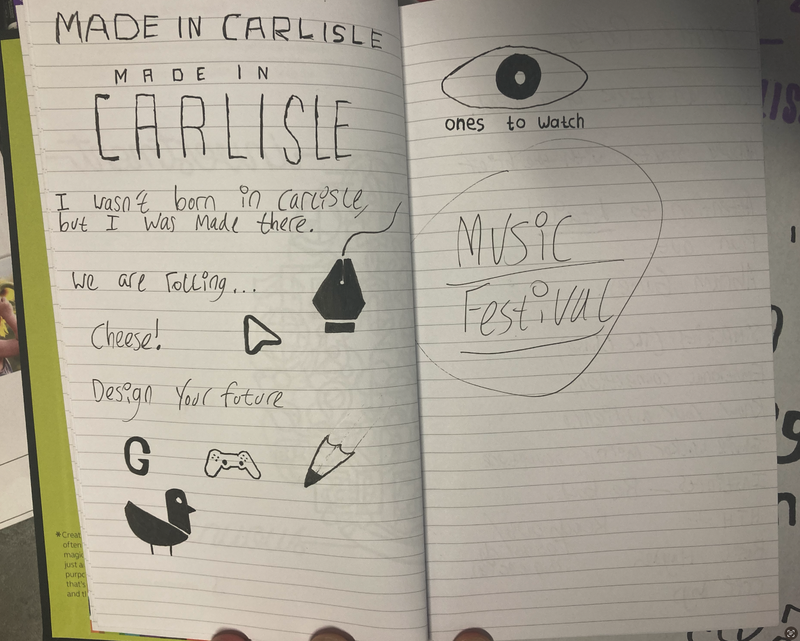 MADE IN CARLISLE
MADE IN
CARLISLE
I wasn't born in Carlisle,
but I was made there.
We are rolling...
Cheese!
Design your future
G
ones to watch
MUSIC
Festival
*Creat
often
magi
just a
purpo
that's
and t